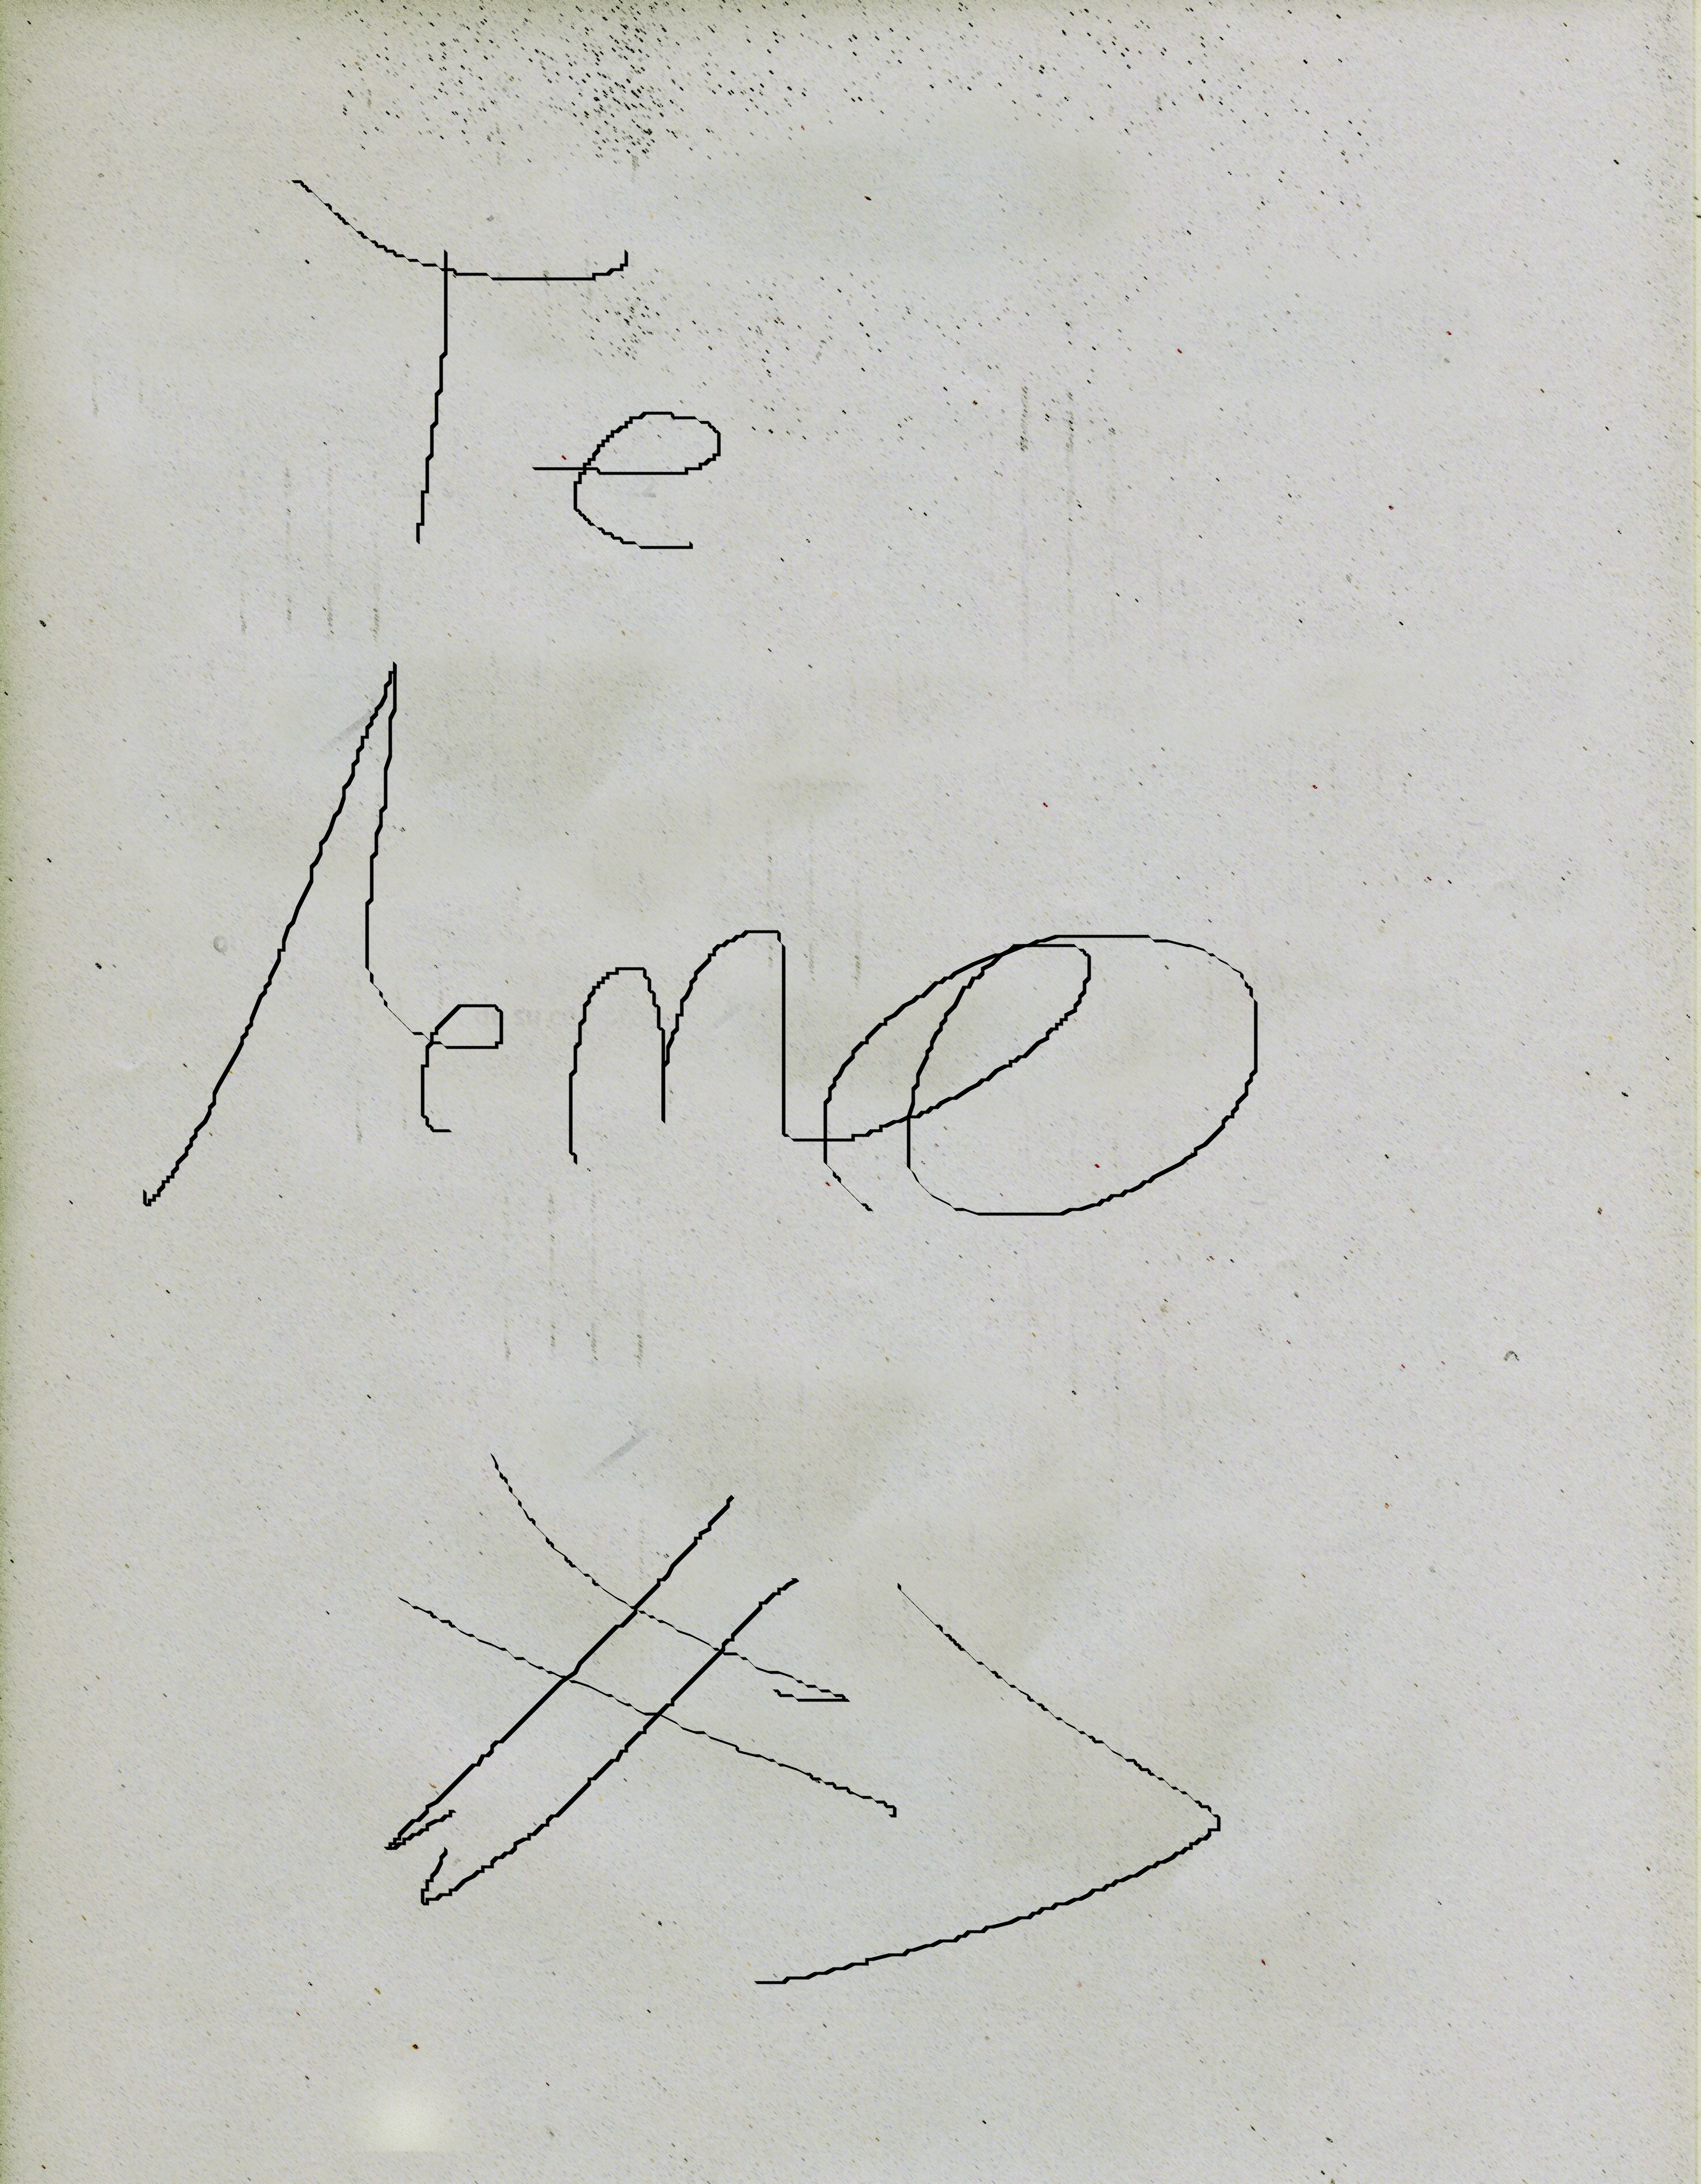 Te
Amo
#>